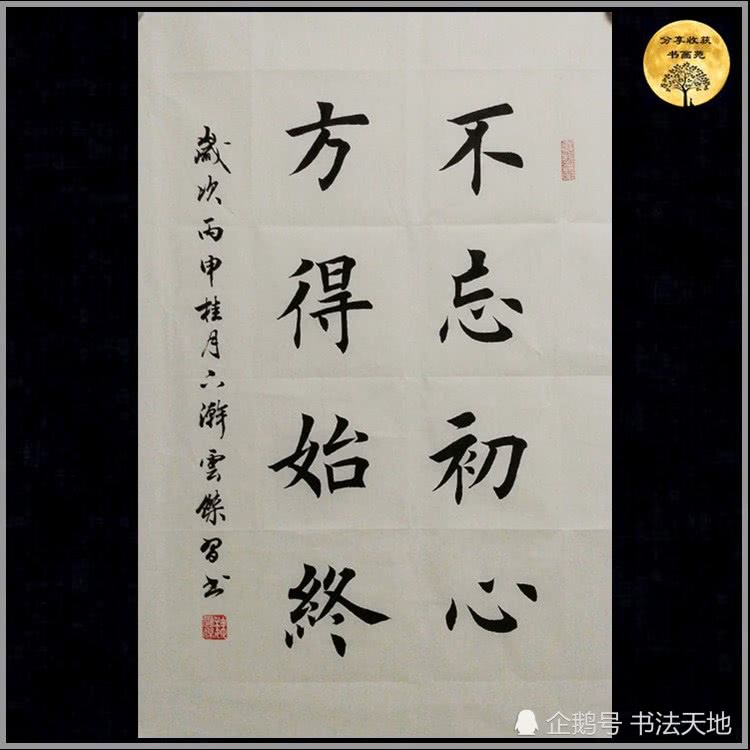 不忘初心
方得始終
歲次丙申桂月下瀚雲傑習書
分享收获
书画苑
企鹅号 书法天地